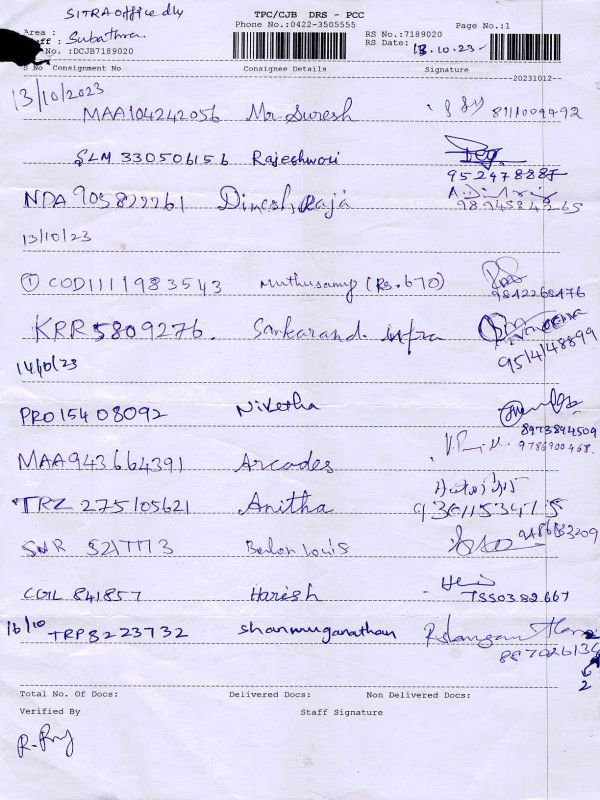 SITRA office dly
TPC/CJB DRS - PCC
Phone No.:0422-3505555
Page No.:1
Area :
RS No.:7189020
Staff : Subathra.
RS Date: 13.10.23-
No. :DCJB7189020
S No Consignment No Consignee Details Signature
20231012
13/10/2023
MAA104242056 Mr Suresh 8111009492
SLM 330506156 Rajeshwari
9524788885
NDA 905822261 Dinesh Raja
9894584265
13/10/23
① COD1111983543 Muthusamy (Rs.670)
9842268176
KRR 5809276. Sankarand. infra
9514148899
14/10/23
PRO15408092 Nivetha
8973894509
9786900468.
MAA943664391 Arcades
TRZ 275105621 Anitha 9361153475
SNR 5217773 Benlon Louis 9486853209
CGL 841857 Harish
7550382667
16/10 TRP8223732 Shanmuganathan
Total No. Of Docs: Delivered Docs: Non Delivered Docs:
Verified By Staff Signature